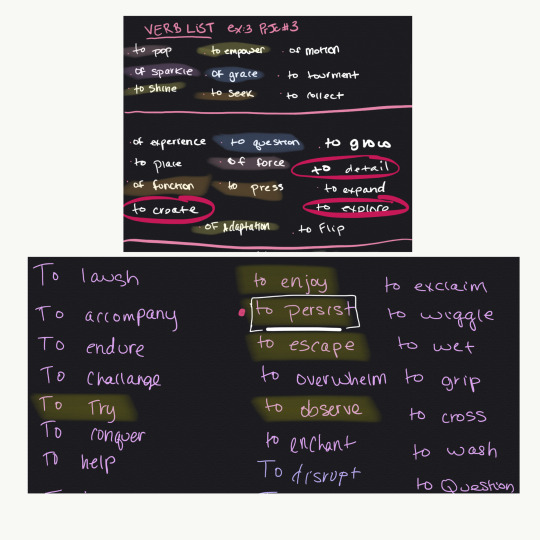 VERB LIST ex:3 Prjc#3
to pop · to empower · of motion
of sparkle · of grace · to tourment
to shine · to seek · to collect
· of experience · to question · to grow
· to place · of force · to detail
of function · to press · to expand
to create · to explore
· of Adaptation · to flip
To laugh to enjoy to exclaim
To accompany to persist to wiggle
To endure to escape to wet
To challange to overwhelm to grip
To Try to observe to cross
To conquer to enchant to wash
To help To disrupt to Question